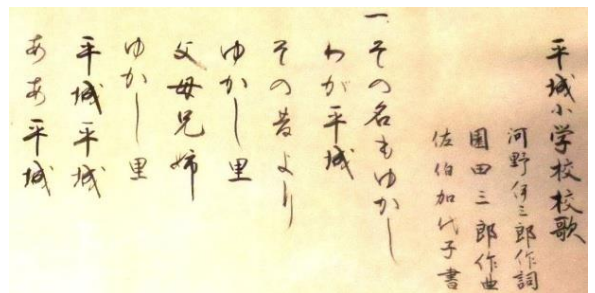 平城小学校校歌
河野伊三郎作詞
園田三郎作曲
佐伯加代子書
一 その名もゆかし
わが平城
その昔より
ゆかし里
父母兄姉
ゆかし里
平城平城
ああ平城